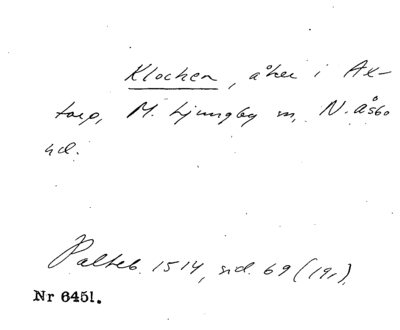 Klocken, åker i Ax-
torp, M. Ljungby sn, N. Åsbo
hd.
Palteb. 1514, sid. 69 (19r).
Nr 6451.